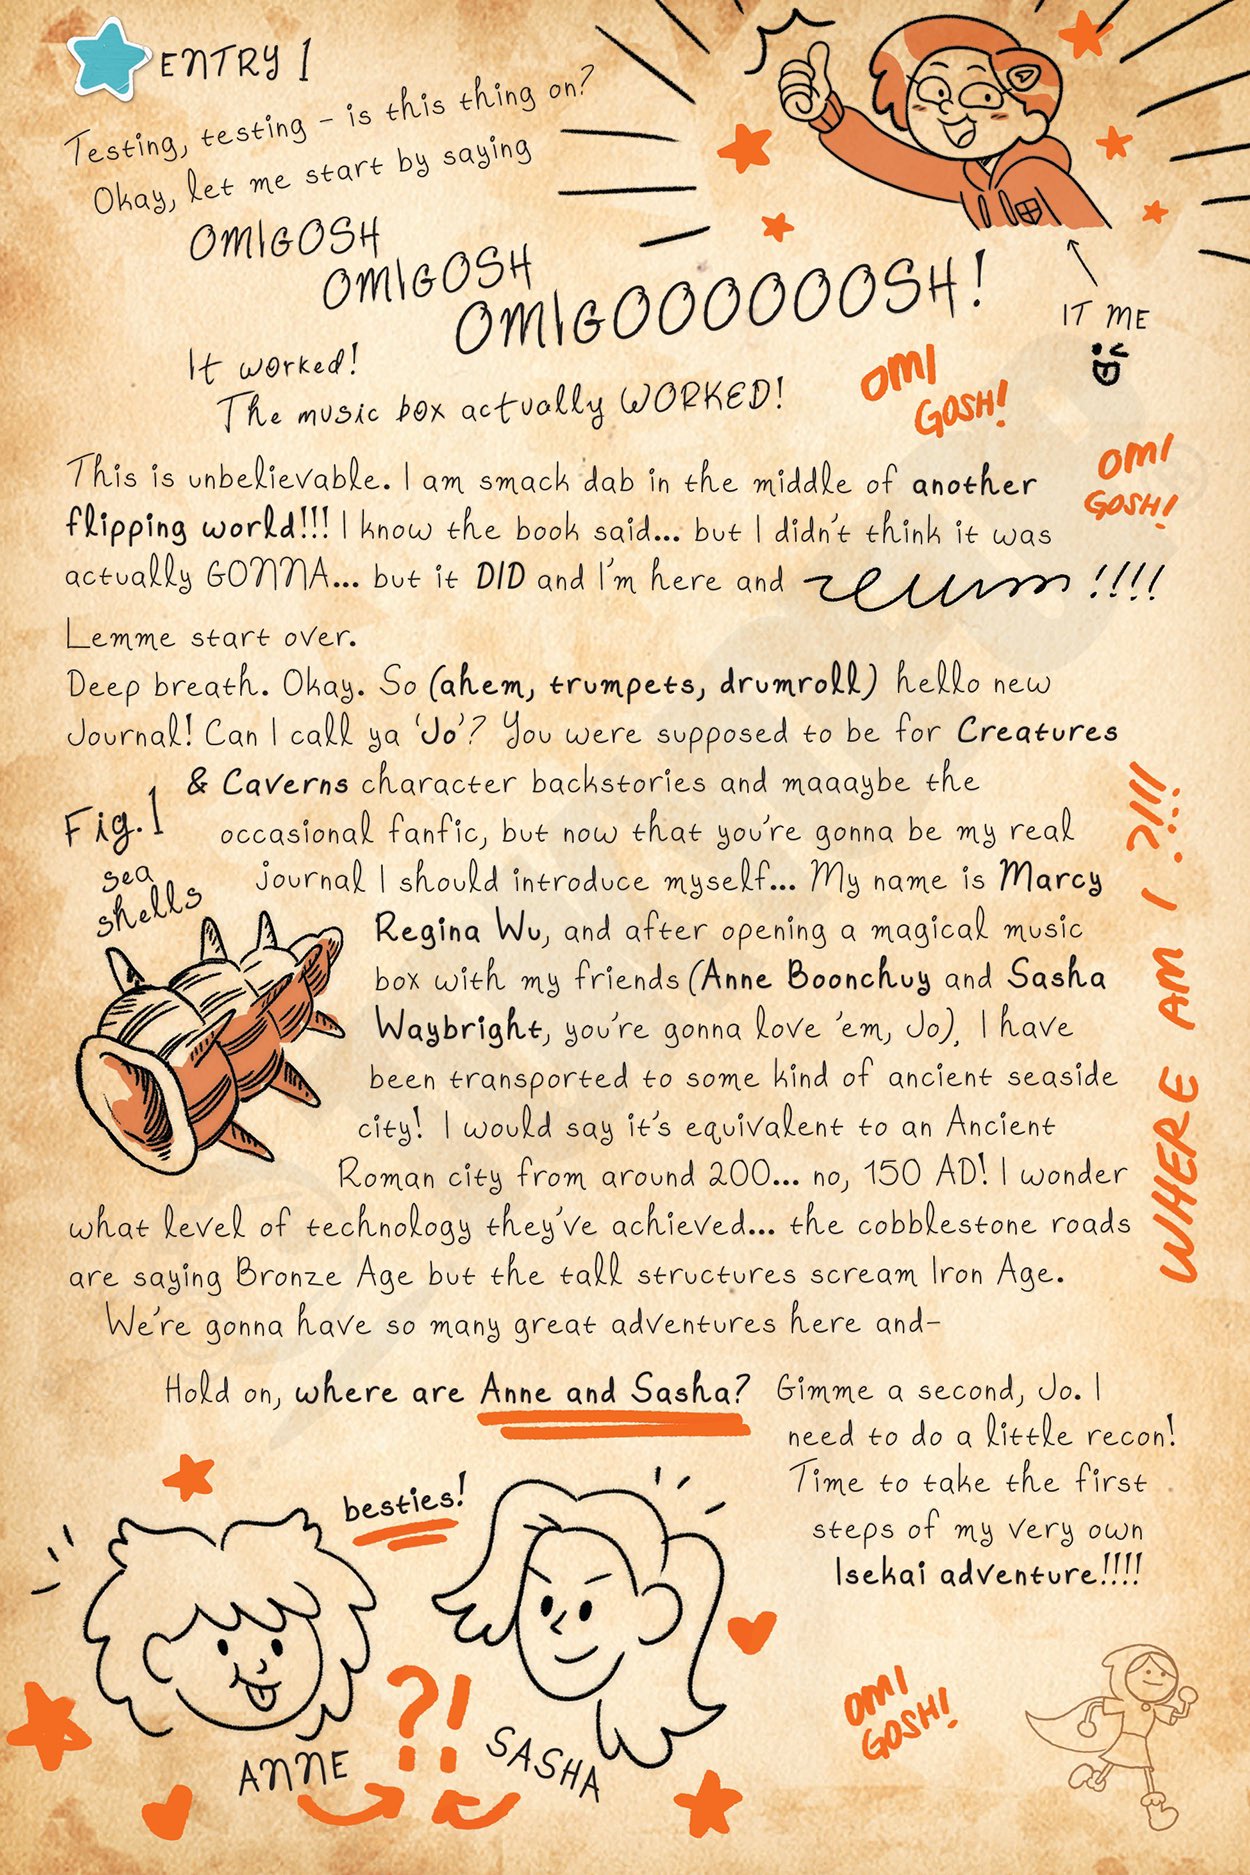 ENTRY 1
Testing, testing - is this thing on?
Okay, let me start by saying
OMIGOSH
OMIGOSH
OMIGOOOOOOSH!
IT ME
It worked!
The music box actually WORKED!
OMI
GOSH!
OMI
GOSH!
This is unbelievable. I am smack dab in the middle of another
flipping world!!! I know the book said... but I didn't think it was
actually GONNA... but it DID and I'm here and !!!!
Lemme start over.
Deep breath. Okay. So (ahem, trumpets, drumroll) hello new
Journal! Can I call ya 'Jo'? You were supposed to be for Creatures
& Caverns character backstories and maaaybe the
occasional fanfic, but now that you're gonna be my real
journal I should introduce myself... My name is Marcy
Regina Wu, and after opening a magical music
box with my friends (Anne Boonchuy and Sasha
Waybright, you're gonna love 'em, Jo), I have
been transported to some kind of ancient seaside
city! I would say it's equivalent to an Ancient
Roman city from around 200... no, 150 AD! I wonder
what level of technology they've achieved... the cobblestone roads
are saying Bronze Age but the tall structures scream Iron Age.
We're gonna have so many great adventures here and-
Fig. 1
sea
shells
WHERE AM I ?!!!
Hold on, where are Anne and Sasha? Gimme a second, Jo. I
need to do a little recon!
Time to take the first
steps of my very own
Isekai adventure!!!!
besties!
?!
ANNE
SASHA
OMI
GOSH!